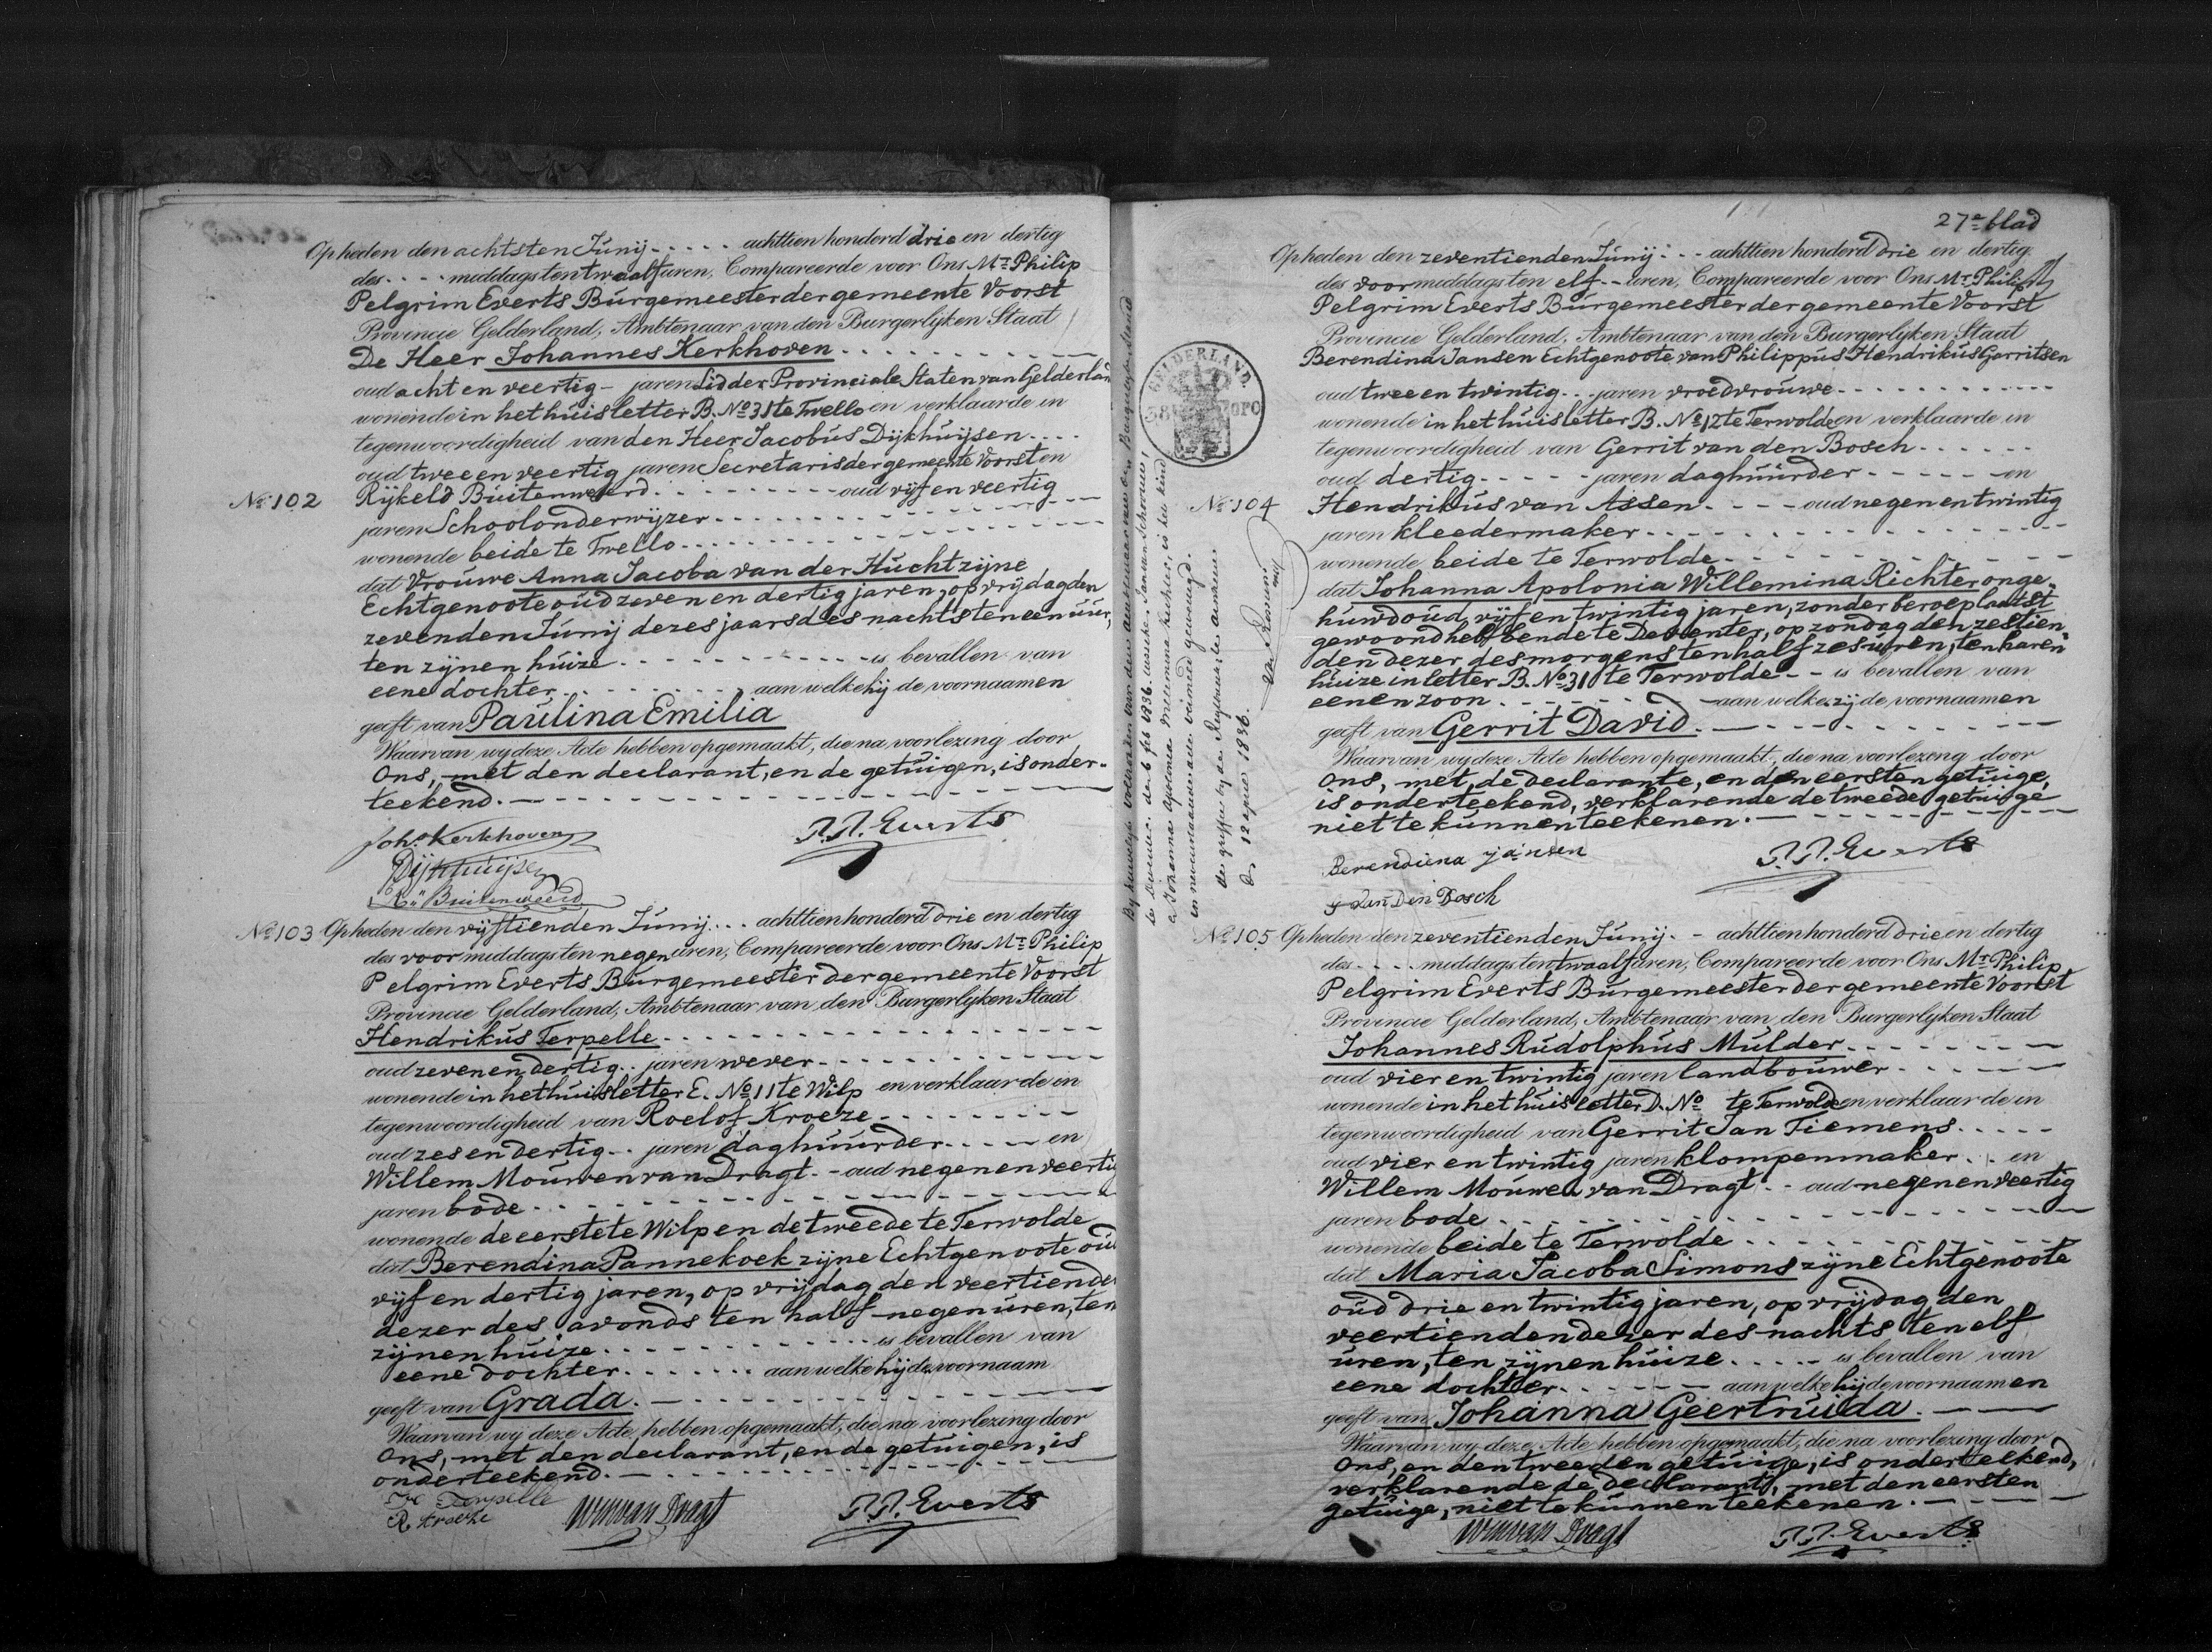 Op heden den achtsten Junij - - - - - achttien honderd drie en dertig
des - - - - middags ten twaalf uren, Compareerde voor Ons Mr. Philip
Pelgrim Everts Burgemeester der gemeente Voorst
Provincie Gelderland, Ambtenaar van den Burgerlijken Staat
De Heer Johannes Kerkhoven
oud acht en veertig - jaren Lid der Provinciale Staten van Gelderland
wonende in het huis letter B. No. 31 te Twello en verklaarde in
tegenwoordigheid van den Heer Jacobus Dijkhuijsen
oud twee en veertig jaren Secretaris der gemeente Voorst en
No. 102 Rijkeld Buitenweerd - - - oud vijf en veertig
jaren Schoolonderwijzer
wonende beide te Twello
dat Vrouwe Anna Jacoba van der Hucht zijne
Echtgenoote oud zeven en dertig jaren, op vrijdag den
zevenden Junij dezes jaars des nachts ten een uur,
ten zijnen huize - - - is bevallen van
eene dochter - - - aan welke hij de voornaamen
geeft van Paulina Emilia
Waarvan wij deze Acte hebben opgemaakt, die na voorlezing door
Ons, met den declarant, en de getuigen, is onder-
teekend.
Joh. Kerkhoven P.P. Everts
Dijkhuijsen
R. Buitenweerd
No. 103 Op heden den vijftienden Junij - - - achttien honderd drie en dertig
des voormiddags ten negen uren, Compareerde voor Ons Mr. Philip
Pelgrim Everts Burgemeester der gemeente Voorst
Provincie Gelderland, Ambtenaar van den Burgerlijken Staat
Hendrikus Terpelle
oud zeven en dertig - - jaren wever
wonende in het huis letter E. No. 11 te Wilp en verklaarde in
tegenwoordigheid van Roelof Kroeze
oud zes en dertig - - jaren daghuurder - - - en
Willem Mouwen van Dragt - - oud negen en veertig
jaren bode
wonende de eerste te Wilp en de tweede te Terwolde
dat Berendina Pannekoek zijne Echtgenoote oud
vijf en dertig jaren, op vrijdag den veertienden
dezer des avonds ten half negen uren, ten
zijnen huize - - - is bevallen van
eene dochter - - - aan welke hij de voornaam
geeft van Grada.
Waarvan wij deze Acte hebben opgemaakt, die na voorlezing door
Ons, met den declarant, en de getuigen, is
onderteekend.
H Terpelle
R. Kroeze WM van Dragt P.P. Everts
By huwelijk voltrokken voor den Ambtenaar van den Burgerlijken Stand
te Deventer den 6 feb 1836 tusschen Jan van Schoonen,
en Johanna Apolonia Willemina Richter, is het kind
in nevenstaande acte vermeld gewettigd
der griffie by de Regtbank te Arnhem
den 12 april 1836.
GELDERLAND
38 OPC
27e blad
Op heden den zeventienden Junij - - - achttien honderd drie en dertig
des voormiddags ten elf - - uren, Compareerde voor Ons Mr. Philip
Pelgrim Everts Burgemeester der gemeente Voorst
Provincie Gelderland, Ambtenaar van den Burgerlijken Staat
Berendina Jansen Echtgenoote van Philippus Hendrikus Gerritsen
oud twee en twintig - - jaren vroedvrouwe
wonende in het huis letter B. No. 12 te Terwolde en verklaarde in
tegenwoordigheid van Gerrit van den Bosch
oud dertig - - - jaren daghuurder - - - en
No. 104 Hendrikus van Assen - - - oud negen en twintig
jaren kleedermaker
wonende beide te Terwolde
dat Johanna Apolonia Willemina Richter onge-
huwd oud vijf en twintig jaren, zonder beroep laatst
gewoond hebbende te Deventer, op zondag den zestien-
den dezer des morgens ten half zes uren, ten haren
huize in letter B. No. 31 te Terwolde - - is bevallen van
eenen zoon - - - aan welke zij de voornaamen
geeft van Gerrit David.
Waarvan wij deze Acte hebben opgemaakt, die na voorlezing door
Ons, met, de declarante, en den eersten getuige,
is onderteekend, verklarende de tweede getuige
niet te kunnen teekenen.
Berendiena Jansen P.P. Everts
g van den Bosch
No. 105 Op heden den zeventienden Junij - - achttien honderd drie en dertig
des - - - middags ten twaalf uren, Compareerde voor Ons Mr. Philip
Pelgrim Everts Burgemeester der gemeente Voorst
Provincie Gelderland, Ambtenaar van den Burgerlijken Staat
Johannes Rudolphus Mulder
oud vier en twintig jaren landbouwer
wonende in het huis letter D. No. te Terwolde en verklaarde in
tegenwoordigheid van Gerrit Jan Tiemens
oud vier en twintig jaren klompenmaker - - en
Willem Mouwen van Dragt - - oud negen en veertig
jaren bode
wonende beide te Terwolde
dat Maria Jacoba Simons zijne Echtgenoote
oud drie en twintig jaren, op vrijdag den
veertienden dezer des nachts ten elf
uren, ten zijnen huize - - - is bevallen van
eene dochter - - - aan welke hij de voornaamen
geeft van Johanna Geertruida.
Waarvan wij deze Acte hebben opgemaakt, die na voorlezing door
Ons, en den tweeden getuige, is onderteekend,
verklarende de declarant, met den eersten
getuige, niet te kunnen teekenen.
WM van Dragt P.P. Everts